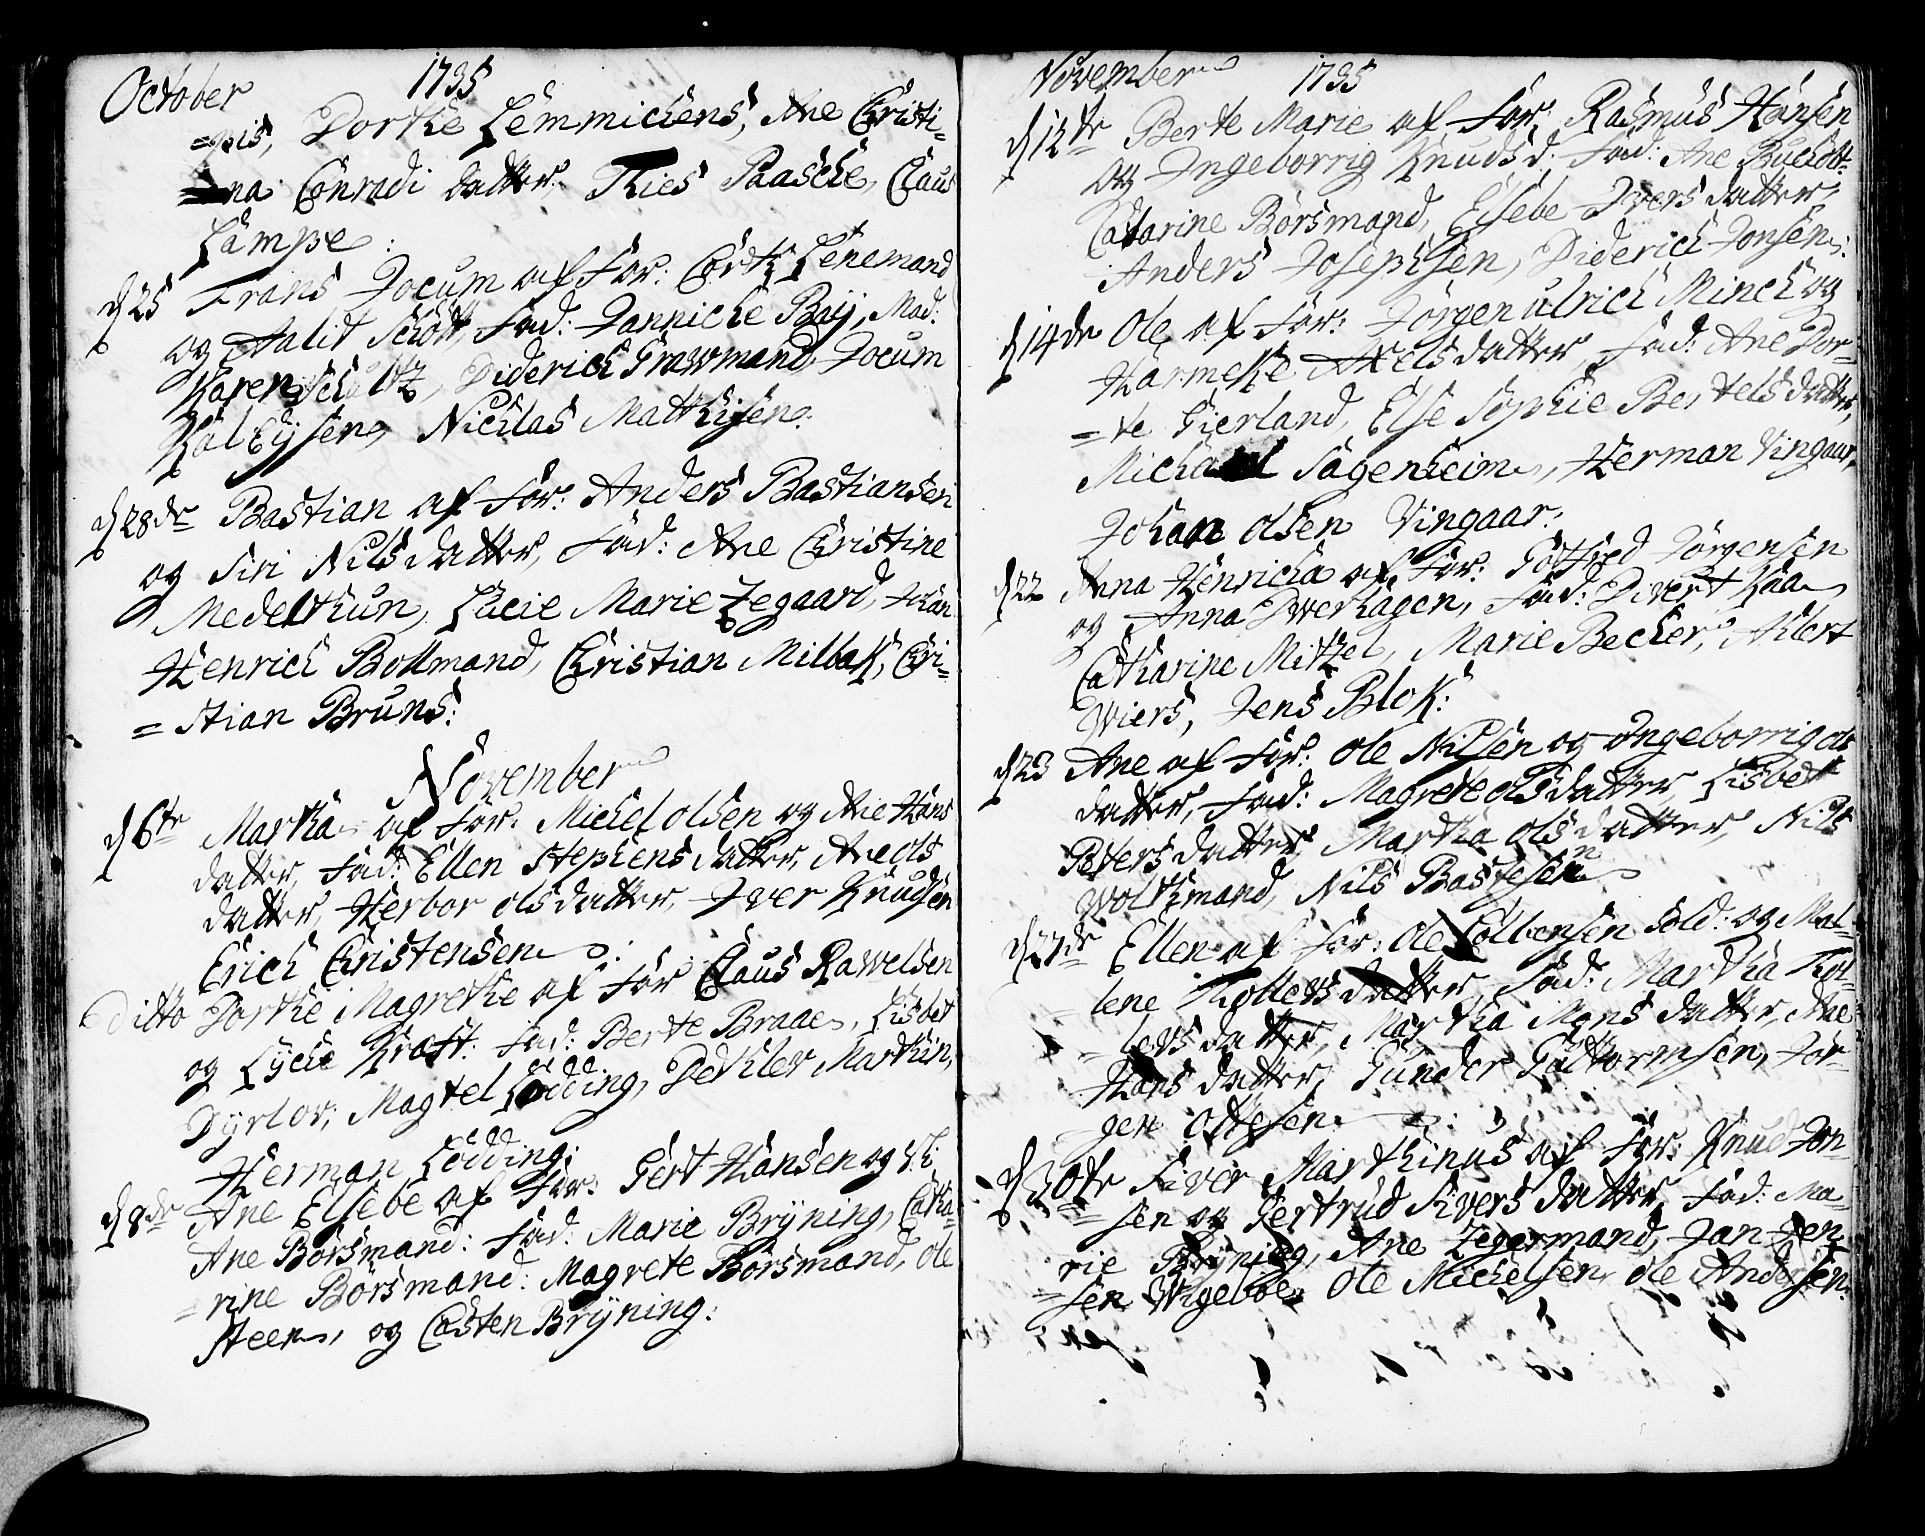 October 1735
=pis, Dorthe Lemmichens, Ane Christi-
=na Conradi datter. Thies Paasche, Claus
Lampe:
d 25 Frans Jocum af For: Cört Lenemand
og Aalit Schött, Fad: Jannicke Bij, Mad:
Karen Schultz, Diderich Grawmand Jocum
Kal Eysen, Nichlas Mathisen:
d 28de Bastian af For: Anders Bastiansen
og Siri Nilsdatter, Fad: Ane Christine
Medelthun, Lucie Marie Zegaard, Johan
Henrich Bollmand, Christian Milbak, Chri-
=stian Bruns:
November
d 6te Martha af For: Michel olsen og Ane Hans
datter, Fad: Ellen Stephensdatter, Ane ols
datter, Herbor olsdatter, Iver Knudsen
Erich Christensen:
Ditto Dorthe Magrethe af For Claus Rawelsen
og Lyche Kraft: Fad: Berte Braae, Lisbet
Dyrlov, Magtel Lödding, Dethlev Marthin,
Herman Lödding:
d 8de Ane Elsebe af For: Gert Hansen og
Ane Börsmand: Fad: Marie Bryning, Catha-
=rine Börsmand: Magrete Börsmand, Ole
Steen, og Casten Bryning:
November 1735
d 12te Berte Marie af For: Rasmus Hansen
og Ingeborrig Knudsd: Fad: Ane
Catarine Börsmand, Elsebe Ivers datter,
Anders Josephsen, Diderich Jonsen:
d 14de Ole af For: Jörgen ulrich Minch og
Harmeke Axelsdatter, Fad: Ane Dor-
=te Gierland, Else Sophie Bertelsdatter,
Michael Sagenheim, Herman Vingaar,
Johan olsen Vingaar:
d 22 Anna Henricha af For: Gotfred Jörgensen
og Anna Dwerhagen, Fad: Divert Kaa
Catharine Mitzel, Marie Becher, Albert
Wiers, Jens Blok:
d 23 Ane af For: Ole Nilsen og Ingeborrig ols
datter, Fad: Magrete olsdatter, Lisbet
Petersdatter, Martha olsdatter, Nils
Wolthmand, Nils Bastesen
d 27de Ellen af For: Ole Colbensen Sold: og Mal-
=lene Thollevsdatter, Fad: Martha Thol-
=levsdatter, Martha Monsdatter, Ane
Hansdatter, Gunder Guttormsen, Jör-
gen Ottesen:
d 30te Siver Marthinus af For: Knud Jon-
sen og Gertrud Siversdatter, Fad: Ma-
rie Bryning, Ane Zegermand, Jan Jen-
=sen Wigeboe, Ole Michelsen, ole Andersen: